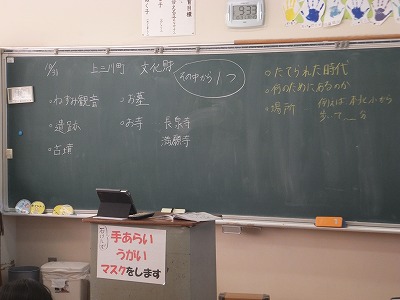 10/31 上三川町 文化財 その中から1つ
・ねずみ観音 ・お墓
・遺跡 ・お寺 長泉寺
満願寺
・古墳
・たてられた時代
・何のためにあるのか
・場所 例えば 本北小から
歩いて__分
手あらい
うがい
マスクをします